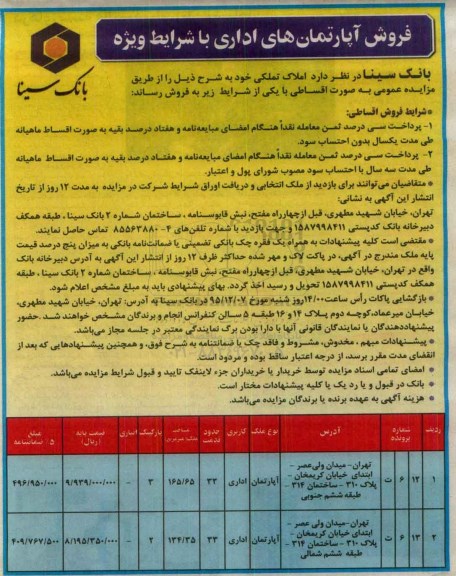 فروش آپارتمان‌های اداری با شرایط ویژه
بانک سینا
بانک سینا در نظر دارد املاک تملکی خود به شرح ذیل را از طریق
مزایده عمومی به صورت اقساطی با یکی از شرایط زیر به فروش رساند:
* شرایط فروش اقساطی:
۱- پرداخت سی درصد ثمن معامله نقداً هنگام امضای مبایعه‌نامه و هفتاد درصد بقیه به صورت اقساط ماهیانه
طی مدت یکسال بدون احتساب سود.
۲- پرداخت سی درصد ثمن معامله نقداً هنگام امضای مبایعه‌نامه و هفتاد درصد بقیه به صورت اقساط ماهیانه
طی مدت سه سال با احتساب سود مصوب شورای پول و اعتبار.
* متقاضیان می‌توانند برای بازدید از ملک انتخابی و دریافت اوراق شرایط شرکت در مزایده به مدت ۱۲ روز از تاریخ
انتشار این آگهی به نشانی:
تهران، خیابان شهید مطهری، قبل از چهارراه مفتح، نبش قابوسنامه، ساختمان شماره ۲ بانک سینا، طبقه همکف
دبیرخانه بانک کدپستی ۱۵۸۷۹۹۸۴۱۱ و جهت بازدید با شماره تلفن‌های ۴-۸۵۵۶۳۸۸۰ تماس حاصل نمایند.
* مقتضی است کلیه پیشنهادات به همراه یک فقره چک بانکی تضمینی یا ضمانت‌نامه بانکی به میزان پنج درصد قیمت
پایه ملک مندرج در آگهی، در پاکت لاک و مهر شده حداکثر ظرف ۱۲ روز از انتشار این آگهی به آدرس دبیرخانه بانک
واقع در تهران، خیابان شهید مطهری، قبل از چهارراه مفتح، نبش قابوسنامه، ساختمان شماره ۲ بانک سینا، طبقه
همکف کدپستی ۱۵۸۷۹۹۸۴۱۱ تحویل و رسید اخذ گردد. بهای پیشنهادی باید به مبلغ مشخص اعلام شود.
* بازگشایی پاکات رأس ساعت ۱۴/۰۰ روز شنبه مورخ ۹۵/۱۲/۰۷ در بانک سینا به آدرس: تهران، خیابان شهید مطهری،
خیابان میرعماد، کوچه دوم پلاک ۱۴ و ۱۶ طبقه ۵ سالن کنفرانس انجام و برندگان مشخص خواهند شد. حضور
پیشنهاددهندگان یا نمایندگان قانونی آنها با دارا بودن برگ نمایندگی معتبر در جلسه مجاز می‌باشد.
* پیشنهادات مبهم، مخدوش، مشروط و فاقد چک یا ضمانتنامه به شرح فوق، و همچنین پیشنهادهایی که بعد از
انقضای مدت مقرر برسد، از درجه اعتبار ساقط بوده و مردود است.
* امضای تمامی اسناد مزایده توسط خریدار یا خریداران جزء لاینفک تایید و قبول شرایط مزایده می‌باشد.
* بانک در قبول و یا رد یک یا کلیه پیشنهادات مختار است.
* هزینه آگهی به عهده برنده یا برندگان مزایده می‌باشد.
ردیف شماره پرونده آدرس نوع ملک کاربری حدود قدمت مساحت پارکینگ انباری قیمت پایه (ریال) مبلغ ۵٪ ضمانتنامه
۱ ۱۲ ۶ ت تهران- میدان ولی‌عصر - ابتدای خیابان کریمخان - پلاک ۳۱۰ - ساختمان ۳۱۴ - طبقه ششم جنوبی آپارتمان اداری ۳۳ ۱۶۵/۶۵ ۳ - ۹/۹۳۹/۰۰۰/۰۰۰ ۴۹۶/۹۵۰/۰۰۰
۲ ۱۳ ۶ ت تهران-میدان ولی عصر - ابتدای خیابان کریمخان - پلاک ۳۱۰ - ساختمان ۳۱۴ - طبقه ششم شمالی آپارتمان اداری ۳۳ ۱۳۴/۳۵ ۲ - ۸/۱۹۵/۳۵۰/۰۰۰ ۴۰۹/۷۶۷/۵۰۰